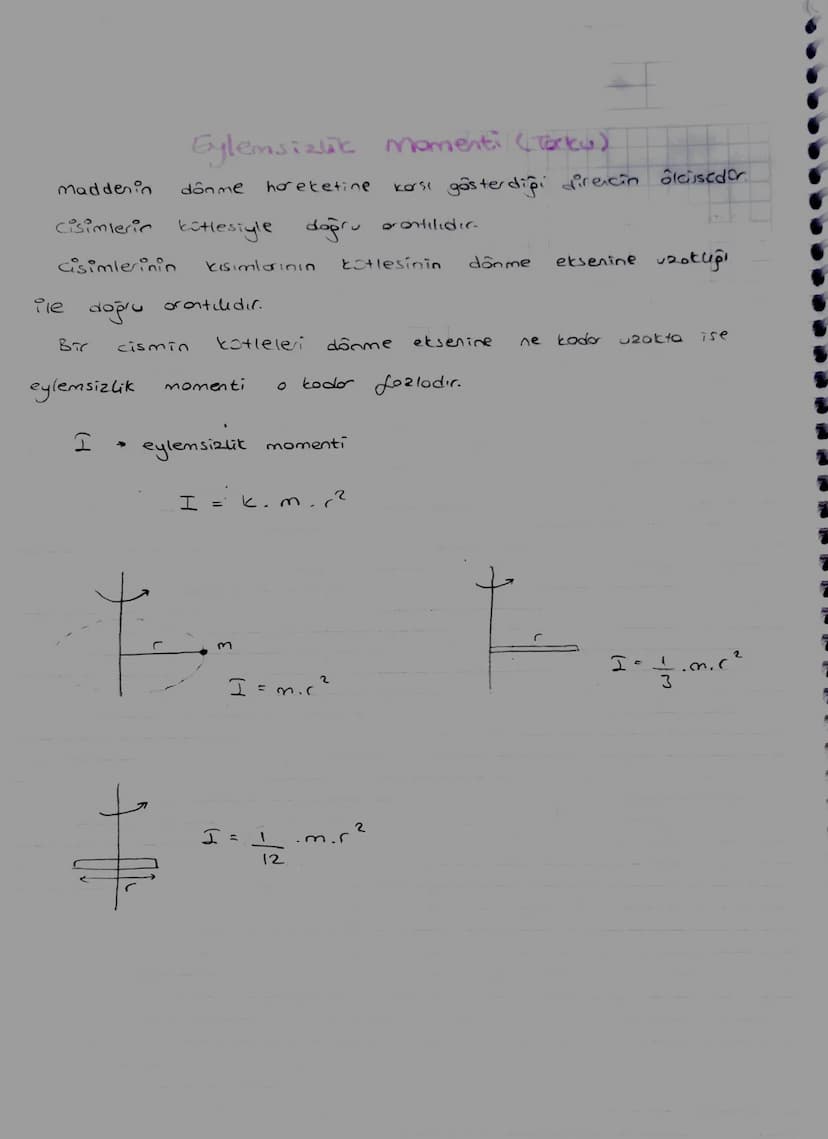 Eylemsizlik momenti (Torku)
maddenin dönme hareketine karşı gösterdiği direncin ölçüsüdür.
cisimlerin kütlesiyle doğru orantılıdır.
cisimlerinin kısımlarının kütlesinin dönme eksenine uzaklığı
ile doğru orantılıdır.
Bir cismin kütleleri dönme eksenine ne kadar uzakta ise
eylemsizlik momenti o kadar fazladır.
I → eylemsizlik momenti
I = k . m . r²
r m
I = m.r²
r
I = 1/3 .m.r²
I = 1/12 .m.r²
r